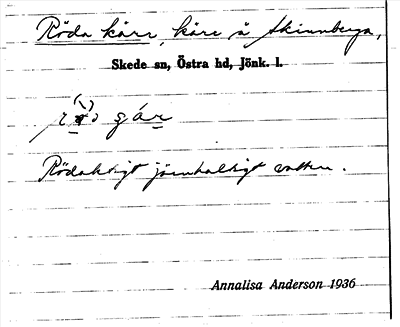 Röda kärr, kärr å Skinnberga,
Skede sn, Östra hd, Jönk. l.
Rödaktigt järnhaltigt vatten.
Annalisa Anderson 1936